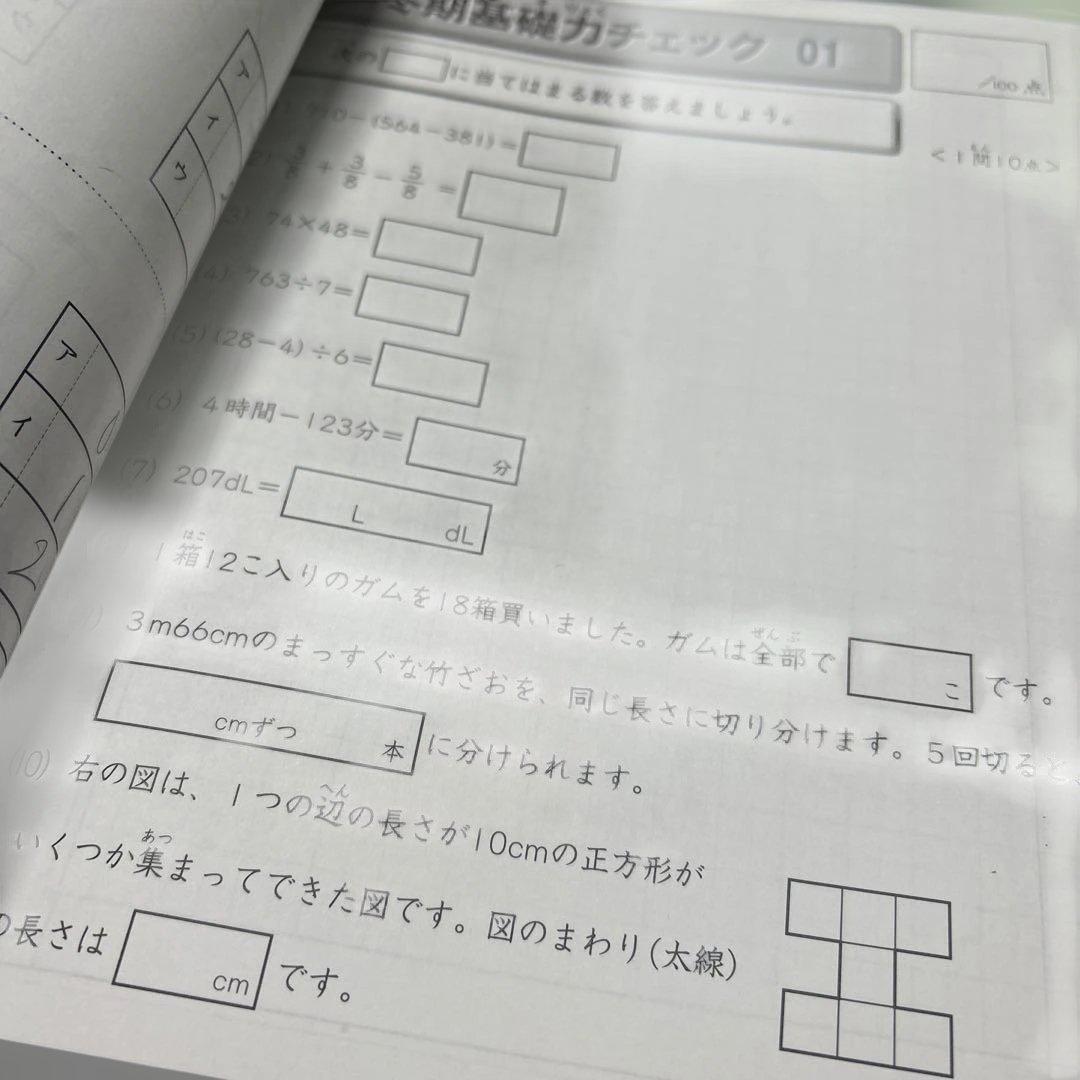 期基礎力チェック 01
/100 点
次の に当てはまる数を答えましょう。
<1問10点>
-(564-381)=
(2) 3/8+3/8-5/8=
(3) 74×48=
(4) 763÷7=
(5) (28-4)÷6=
(6) 4時間-123分= 分
(7) 207dL= L dL
1箱12こ入りのガムを18箱買いました。ガムは全部で こ です。
3m66cmのまっすぐな竹ざおを、同じ長さに切り分けます。5回切ると、
cmずつ 本 に分けられます。
(10) 右の図は、1つの辺の長さが10cmの正方形が
いくつか集まってできた図です。図のまわり(太線)
の長さは cm です。
ア
イ
ウ
ア
イ
0
1
2